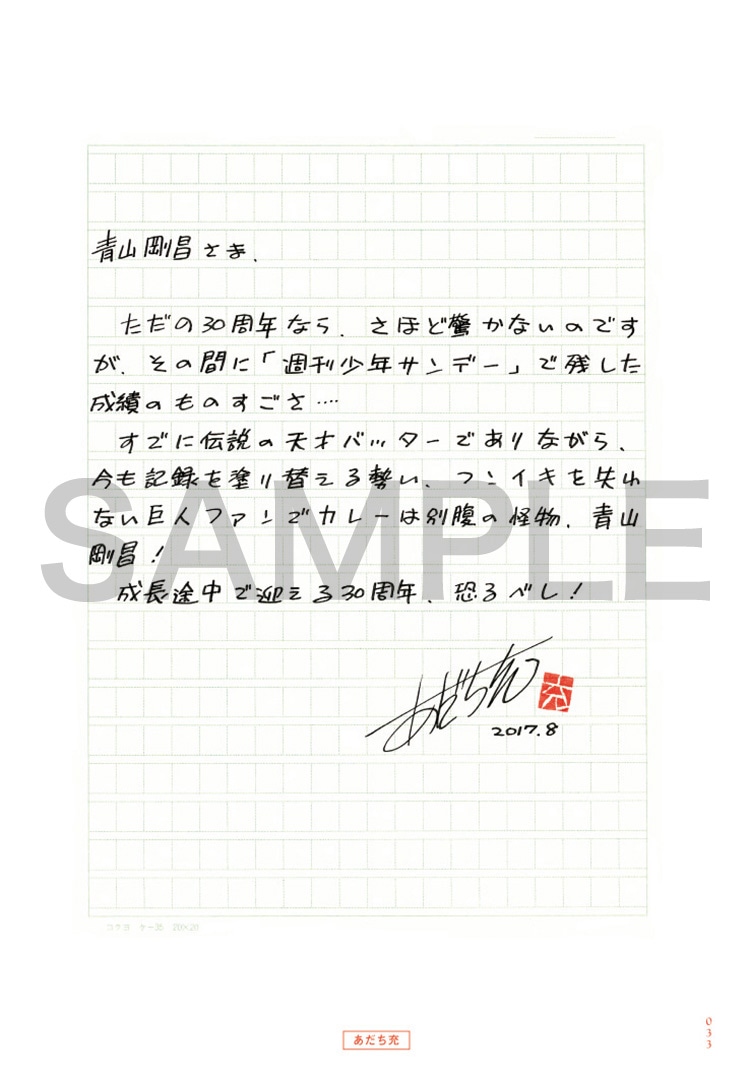 青山剛昌さま、
ただの30周年なら、さほど驚かないのです
が、その間に「週刊少年サンデー」で残した
成績のものすごさ‥‥
すでに伝説の天才バッターでありながら、
今も記録を塗り替える勢い、フンイキを失わ
ない巨人ファンでカレーは別腹の怪物、青山
剛昌！
成長途中で迎える30周年、恐るべし！
あだち充
充
2017.8
SAMPLE
コクヨ ケー35 20×20
あだち充
033